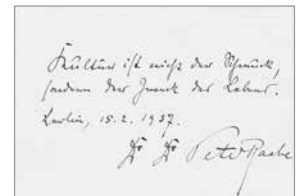 Kultur ist nicht der Schmuck,
sondern der Zweck des Lebens.
Berlin, 15.2.1937.
Dr Dr Peter Raabe